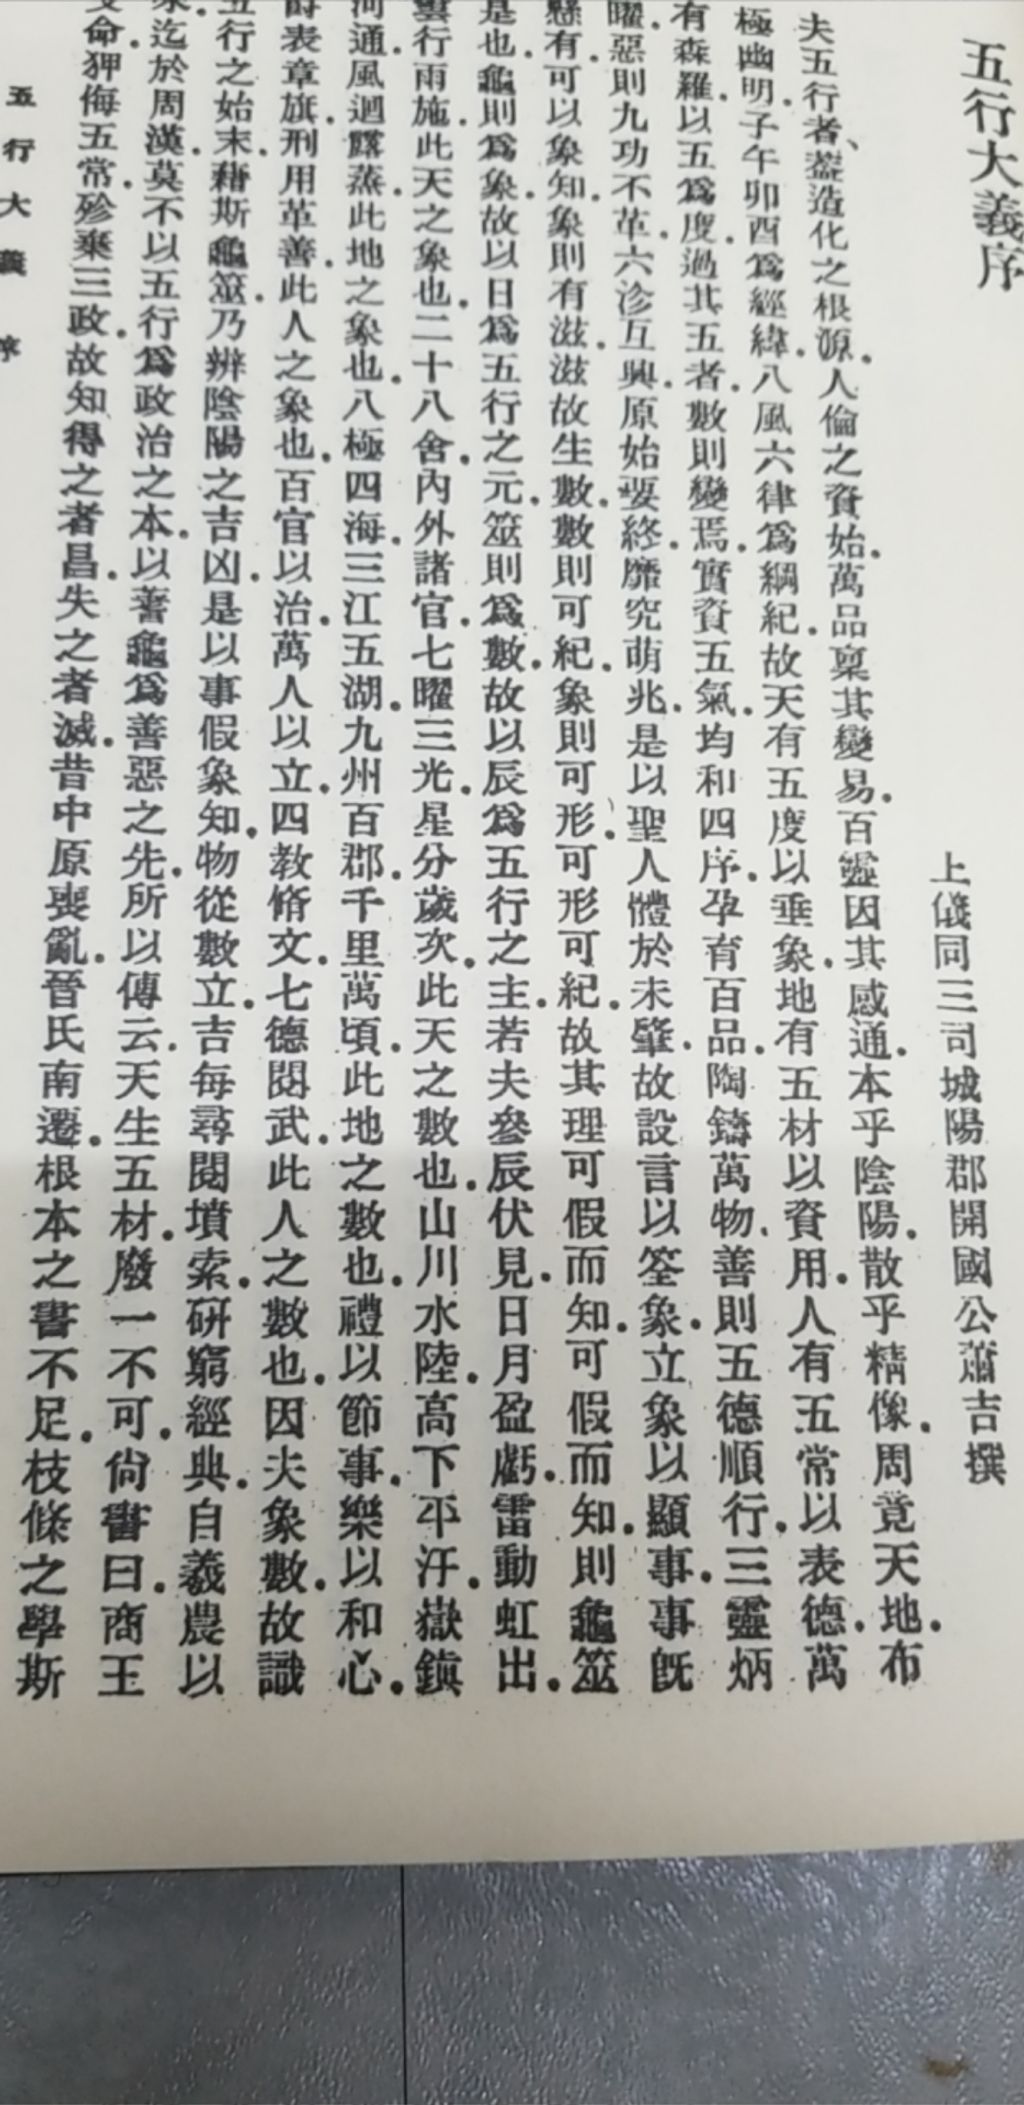 五行大義序
上儀同三司城陽郡開國公蕭吉撰
夫五行者、蓋造化之根源。人倫之資始。萬品稟其變易。百靈因其感通。本乎陰陽。散乎精像。周竟天地。布
極幽明。子午卯酉爲經緯。八風六律爲綱紀。故天有五度以垂象。地有五材以資用。人有五常以表德。萬
有森羅。以五爲度。過其五者。數則變焉。實資五氣。均和四序。孕育百品。陶鑄萬物。善則五德順行。三靈炳
曜。惡則九功不革。六沴互興。原始要終。靡究萌兆。是以聖人體於未肇。故設言以筌象。立象以顯事。事旣
懸有。可以象知。象則有滋。滋故生數。數則可紀。象則可形。可形可紀。故其理可假而知。可假而知。則龜筮
是也。龜則爲象。故以日爲五行之元。筮則爲數。故以辰爲五行之主。若夫參辰伏見。日月盈虧。雷動虹出。
雲行雨施。此天之象也。二十八舍。內外諸官。七曜三光。星分歲次。此天之數也。山川水陸。高下平汙。嶽鎭
河通。風迴露蒸。此地之象也。八極四海。三江五湖。九州百郡。千里萬頃。此地之數也。禮以節事。樂以和心。
爵表章旗。刑用革善。此人之象也。百官以治。萬人以立。四教脩文。七德閱武。此人之數也。因夫象數。故識
五行之始末。藉斯龜筮。乃辨陰陽之吉凶。是以事假象知。物從數立。吉每尋閱墳索。研窮經典。自羲農以
來。迄於周漢。莫不以五行爲政治之本。以蓍龜爲善惡之先。所以傳云。天生五材。廢一不可。尙書曰。商王
受命。狎侮五常。殄棄三政。故知得之者昌。失之者滅。昔中原喪亂。晉氏南遷。根本之書不足。枝條之學斯
五行大義 序